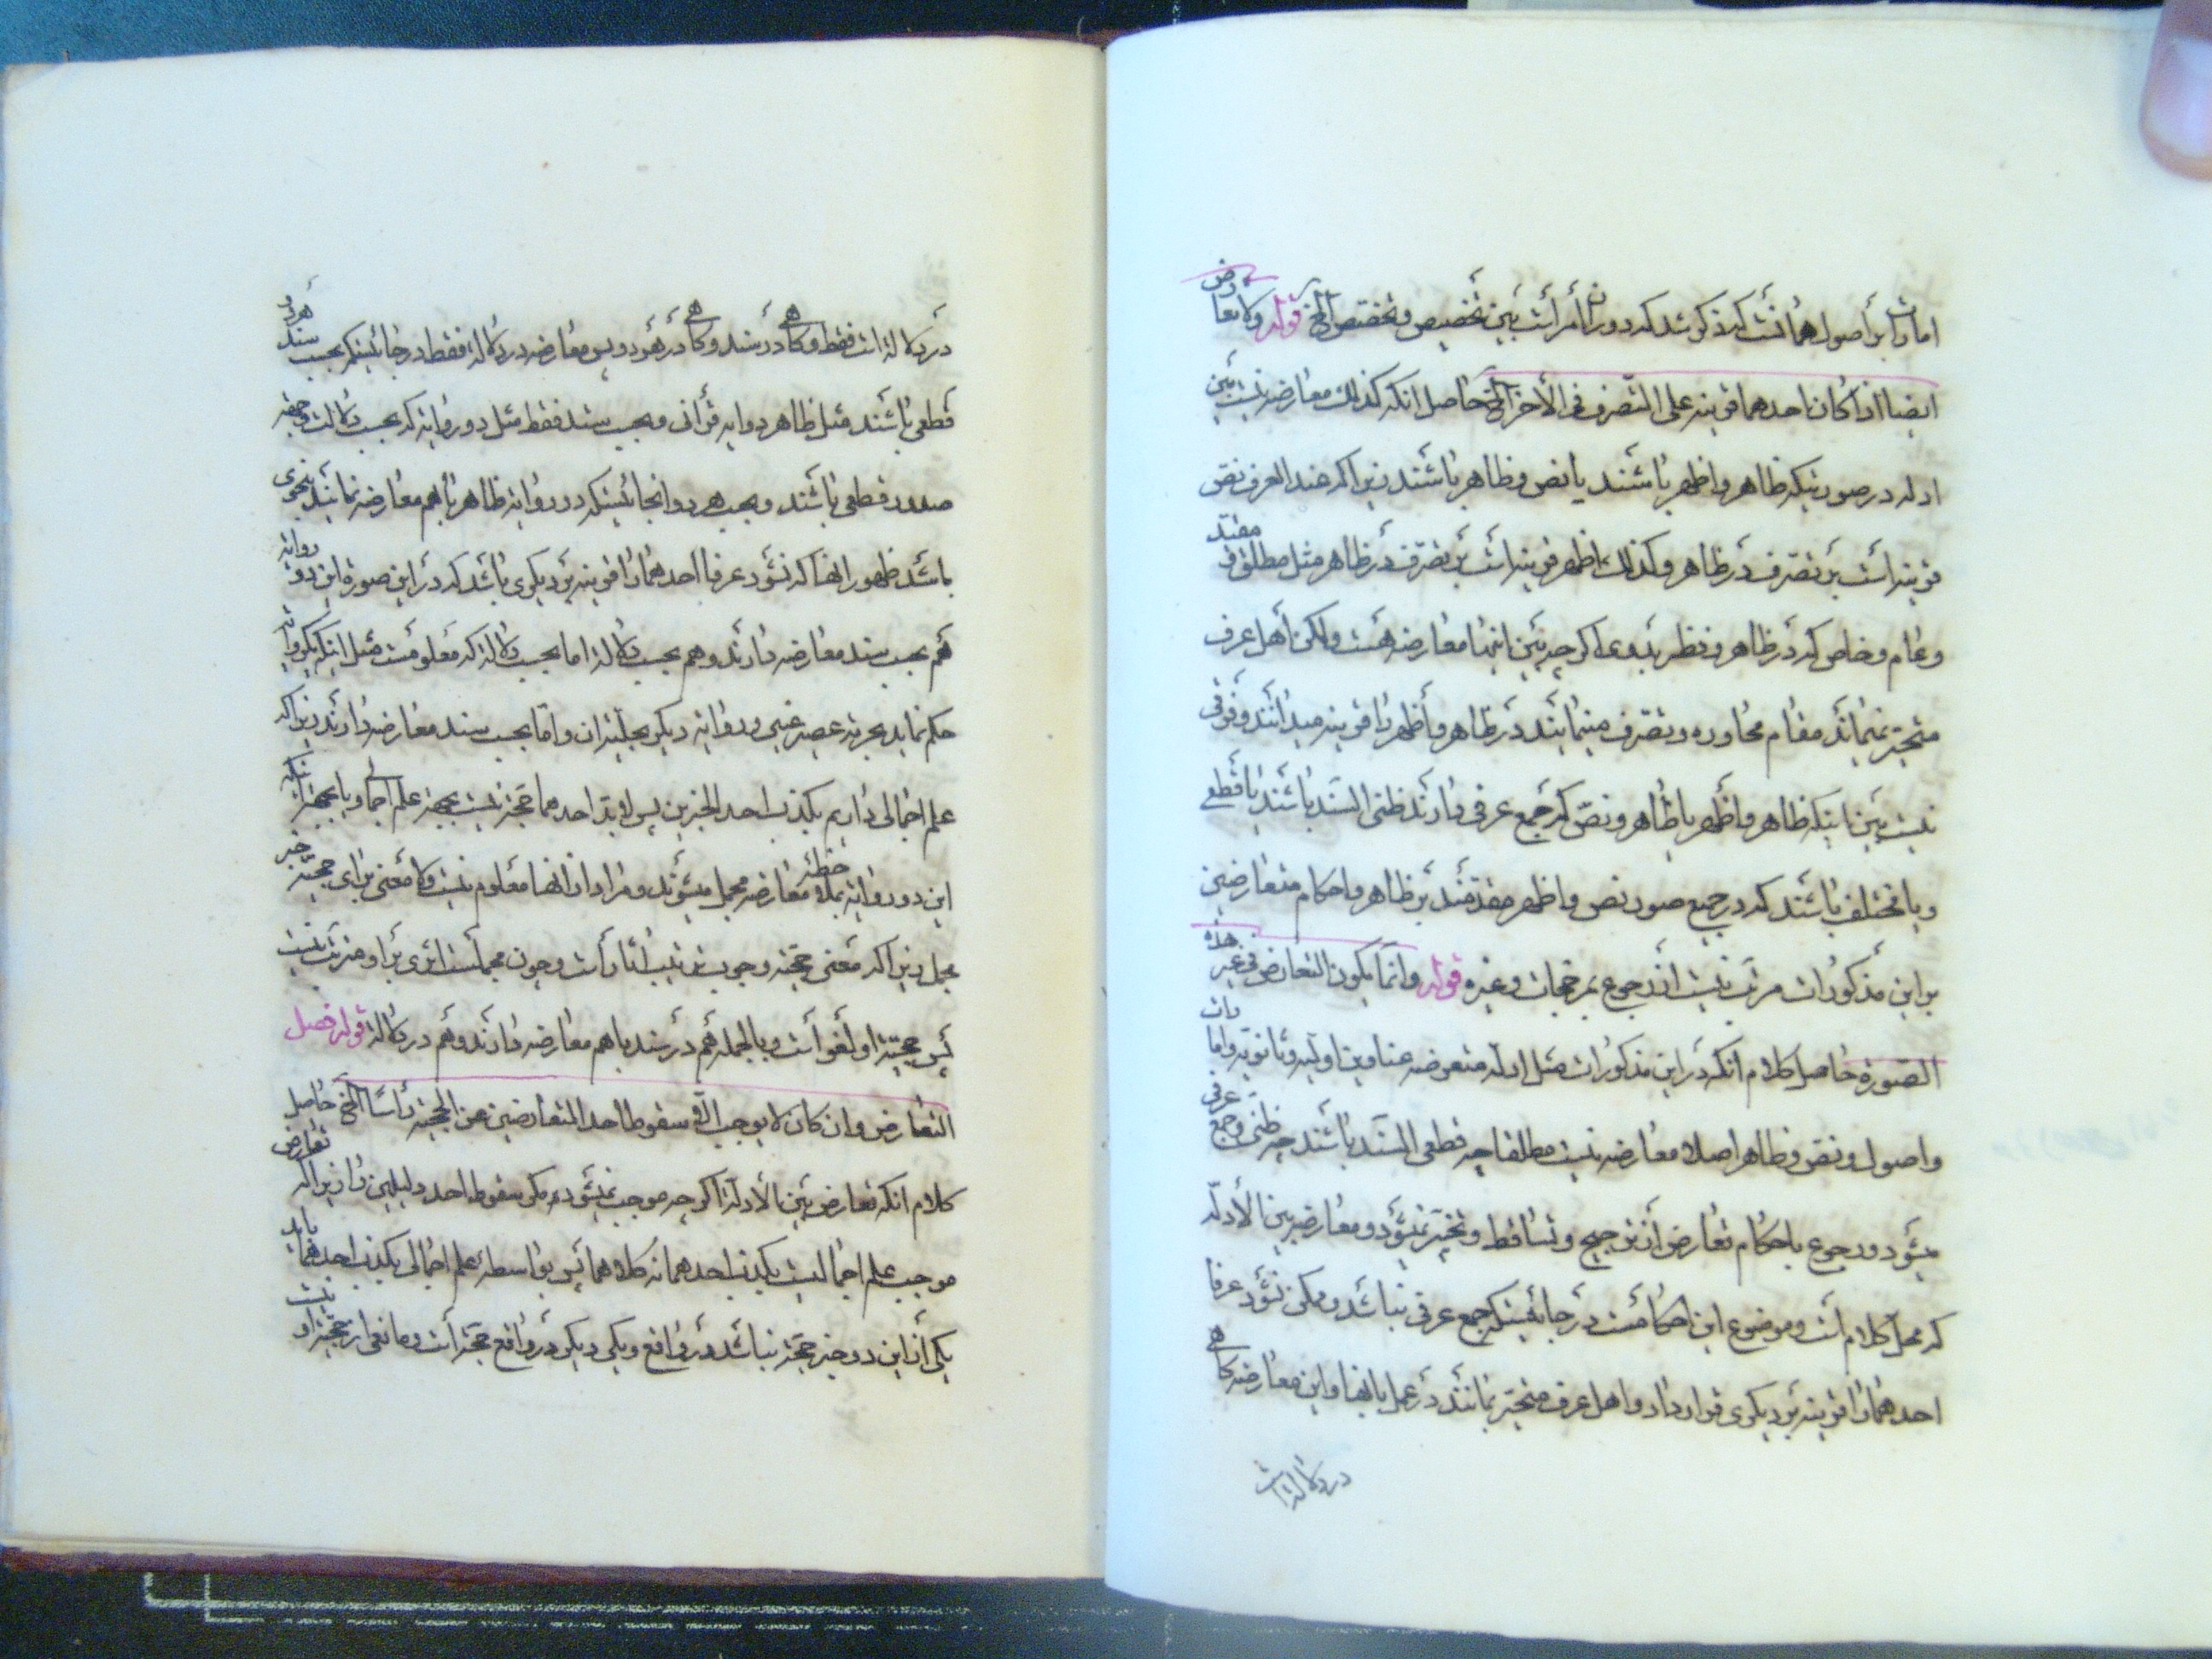 امارات بر اصول همانست که مذکور شد که دوران امر است بین تخصیص و تخصص الخ قوله ولا تعارض
ایضا اذا کان احدهما قرینه علی التصرف فی الاخر الخ حاصل انکه کذلک معارضه نیست بین
ادله در صورتیکه ظاهر و اظهر باشند یا نص و ظاهر باشند زیرا که عند العرف نص
قرینه است بر تصرف در ظاهر و کذلک اظهر قرینه است بر تصرف در ظاهر مثل مطلق و مقید
و عام و خاص که در ظاهر و نظر بدوی اگر چه بین اینها معارضه هست ولکن اهل عرف
متحیر نمیمانند مقام محاوره و تصرف مینمایند در ظاهر و اظهر را قرینه میدانند و فرقی
نیست بین اینکه ظاهر و اظهر یا ظاهر و نص که جمع عرفی دارند ظنی السند باشند یا قطعی
و یا مختلف باشند که در جمیع صور نص و اظهر مقدمند بر ظاهر و احکام متعارضین
بر این مذکورات مرتب نیست از رجوع بمرجحات و غیره قوله وانما یکون التعارض فی غیر هذه
الصورة حاصل کلام انکه در این مذکورات مثل ادله متعرضه عناوین اولیه و ثانویه و امارات
و اصول و نص و ظاهر اصلا معارضه نیست مطلقا چه قطعی السند باشند چه ظنی و جمع عرفی
میشود و رجوع باحکام تعارض از ترجیح و تساقط و تخییر نمیشود و معارضه بین الادله
که محل کلام است و موضوع این احکامست در جائیستکه جمع عرفی نباشد و ممکن نشود عرفا
احدهما را قرینه بر دیگری قرار داد و اهل عرف متحیر بمانند در عمل بانها و این معارضه کاهی
در دلالة است
در دلالة است فقط و کاهی در سند و کاهی در هر دو پس معارضه در دلالة فقط در جائیستکه بحسب سند هر دو
قطعی باشند مثل ظاهر دو ایه قرأنی و بحسب سند فقط مثل دو روایة که بحسب دلالت و جهة
صدور قطعی باشند و بحسب هر دو انجائیستکه دو روایة ظاهر باهم معارضه نمایند بنحوی
باشد ظهور انها که نشود عرفا احدهما را قرینه بر دیگری باشد که در این صورة این دو روایة
هم بحسب سند معارضه دارند و هم بحسب دلالة اما بحسب دلالة که معلومست مثل اینکه یک روایة
حکم نماید بحرمة عصیر عنبی و روایة دیگر بحلیة ان و اما بحسب سند معارضه دارند زیرا که
علم اجمالی داریم بکذب احد الخبرین پس لابد احدهما حجة نیست بجهة علم اجمالی و یا بجهة انکه
این دو روایة بملاحظه معارضه مجمل میشوند و مراد از انها معلوم نیست ولا معنی برای حجیة خبر
مجمل زیرا که معنی حجیة وجوب ترتیب اثار است و چون مجملست اثری بر او مترتب نیست
پس حجیة او لغو است و بالجمله هم در سند باهم معارضه دارند و هم در دلالة قوله فصل
التعارض وان کان لا یوجب الا سقوط احد المتعارضین عن الحجیة رأسا الخ حاصل
کلام انکه تعارض بین الادلة اگر چه موجب نمیشود مگر سقوط احد دلیلین را زیرا که تعارض
موجب علم اجمالیست بکذب احدهما نه کلاهما پس بواسطه علم اجمالی بکذب احدهما باید
یکی از این دو خبر حجة نباشد در واقع و یکی دیگر در واقع حجة است و مانعی از حجیة او نیست